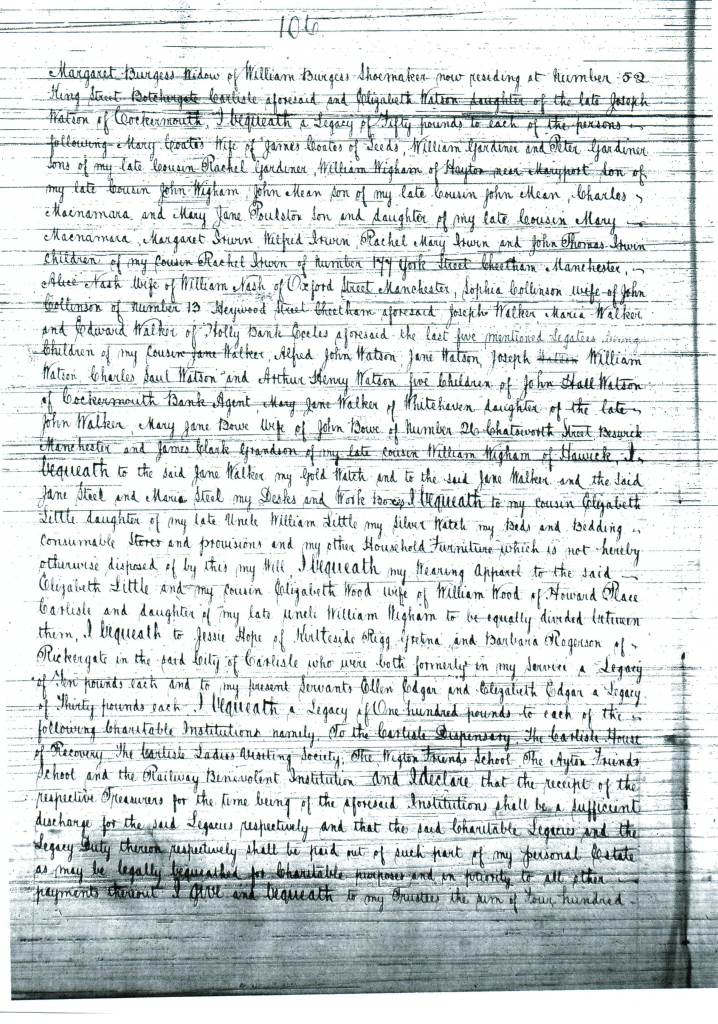 106
Margaret Burgess Widow of William Burgess Shoemaker now residing at Number 52
King Street Botchergate Carlisle aforesaid and Elizabeth Watson daughter of the late Joseph
Watson of Cockermouth, I bequeath a Legacy of Fifty pounds to each of the persons
following Mary Coates Wife of James Coates of Leeds, William Gardiner and Peter Gardiner
sons of my late Cousin Rachel Gardiner, William Wigham of Hayton near Maryport son of
my late Cousin John Wigham, John Mean son of my late Cousin John Mean, Charles
Macnamara and Mary Jane Poulston son and daughter of my late Cousin Mary
Macnamara, Margaret Irwin Wilfred Irwin Rachel Mary Irwin and John Thomas Irwin
children of my cousin Rachel Irwin of Number 177 York Street Cheetham Manchester,
Alice Nash Wife of William Nash of Oxford Street Manchester, Sophia Collinson wife of John
Collinson of Number 13 Heywood Street Cheetham aforesaid Joseph Walker Maria Walker
and Edward Walker of Holly Bank Eccles aforesaid the last five mentioned Legatees being
Children of my Cousin Jane Walker, Alfred John Watson Jane Watson, Joseph William
Watson Charles Saul Watson and Arthur Henry Watson five Children of John Hall Watson
of Cockermouth Bank Agent Mary Jane Walker of Whitehaven daughter of the late
John Walker Mary Jane Bowe Wife of John Bowe of Number 26 Chatsworth Street Beswick
Manchester and James Clark Grandson of my late cousin William Wigham of Hawick, I
bequeath to the said Jane Walker my Gold Watch and to the said Jane Walker and the said
Jane Steel and Maria Steel my Desks and Work Boxes I bequeath to my cousin Elizabeth
Little daughter of my late Uncle William Little my Silver Watch my Beds and Bedding
Consumable Stores and provisions and my other Household Furniture which is not hereby
otherwise disposed of by this my Will, I bequeath my Wearing Apparel to the said
Elizabeth Little and my cousin Elizabeth Wood wife of William Wood of Howard Place
Carlisle and daughter of my late Uncle William Wigham to be equally divided between
them, I bequeath to Jessie Hope of Rigg Gretna and Barbara Rogerson of
Rickergate in the said City of Carlisle who were both formerly in my service a Legacy
of Ten pounds each and to my present Servants Ellen Edgar and Elizabeth Edgar a Legacy
of Thirty pounds each I bequeath a Legacy of One hundred pounds to each of the
following Charitable Institutions namely, To the Carlisle Dispensary The Carlisle House
of Recovery The Carlisle Ladies Visiting Society, The Wigton Friends School The Ayton Friends
School and the Railway Benevolent Institution And I declare that the receipt of the
respective Treasurers for the time being of the aforesaid Institutions shall be a sufficient
discharge for the said Legacies respectively and that the said Charitable Legacies and the
Legacy Duty thereon respectively shall be paid out of such part of my personal Estate
as may be legally bequeathed for Charitable purposes and in priority to all other
payments thereout I give and bequeath to my Trustees the sum of Four hundred